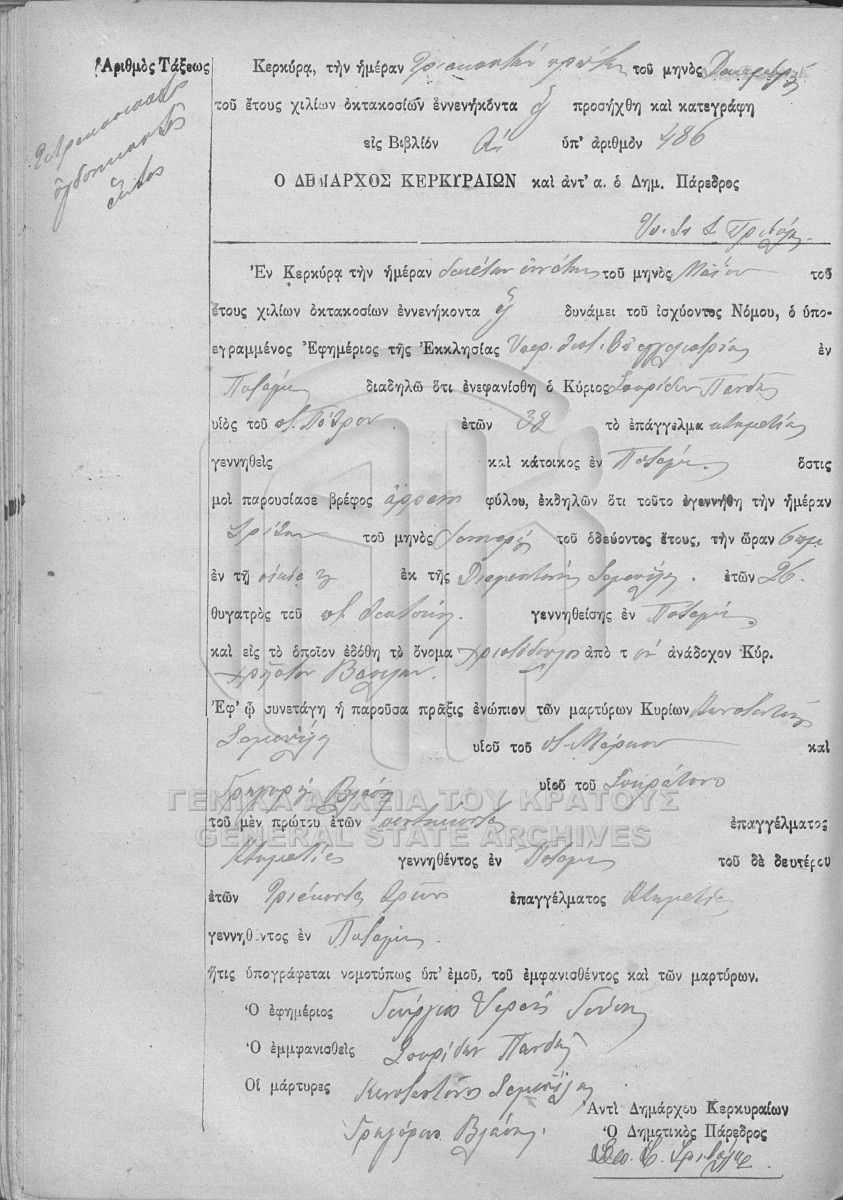 Ἀριθμὸς Τάξεως
Τετρακοσιοστὸς
ὀγδοηκοστὸς
ἕκτος
Κερκύρᾳ, τὴν ἡμέραν τριακοστὴν πρώτην τοῦ μηνὸς
τοῦ ἔτους χιλίων ὀκτακοσίων ἐννενήκοντα προσήχθη καὶ κατεγράφη
εἰς Βιβλίον ὑπ' ἀριθμὸν 486
Ο ΔΗΜΑΡΧΟΣ ΚΕΡΚΥΡΑΙΩΝ καὶ ἀντ' α. ὁ Δημ. Πάρεδρος
Ἐν Κερκύρᾳ τὴν ἡμέραν δεκάτην ἐννάτην τοῦ μηνὸς Μαΐου τοῦ
ἔτους χιλίων ὀκτακοσίων ἐννενήκοντα δυνάμει τοῦ ἰσχύοντος Νόμου, ὁ ὑπο-
εγραμμένος Ἐφημέριος τῆς Ἐκκλησίας ἐν
Ποταμῷ διαδηλῶ ὅτι ἐνεφανίσθη ὁ Κύριος Σπυρίδων Πανδῆς
υἱὸς τοῦ π. Πέτρου ἐτῶν 38 τὸ ἐπάγγελμα κτηματίας
γεννηθεὶς καὶ κάτοικος ἐν Ποταμῷ ὅστις
μοὶ παρουσίασε βρέφος ἄρρεν φύλου, ἐκδηλῶν ὅτι τοῦτο ἐγεννήθη τὴν ἡμέραν
τρίτην τοῦ μηνὸς τοῦ ὁδεύοντος ἔτους, τὴν ὥραν
ἐν τῇ οἰκίᾳ ἐκ τῆς ἐτῶν 26
θυγατρὸς τοῦ γεννηθείσης ἐν Ποταμῷ
καὶ εἰς τὸ ὁποῖον ἐδόθη τὸ ὄνομα Χριστόδουλος ἀπὸ τ ὸν ἀνάδοχον Κύρ.
Χρῆστον
Ἐφ' ᾧ συνετάγη ἡ παροῦσα πρᾶξις ἐνώπιον τῶν μαρτύρων Κυρίων Κωνσταντίνου
υἱοῦ τοῦ π. Μάρκου καὶ
Γρηγόρη Βλάση υἱοῦ τοῦ Σωκράτους
ΓΕΝΙΚΑ ΑΡΧΕΙΑ ΤΟΥ ΚΡΑΤΟΥΣ
GENERAL STATE ARCHIVES
τοῦ μὲν πρώτου ἐτῶν πεντήκοντα ἐπαγγέλματος
Κτηματίας γεννηθέντος ἐν Ποταμῷ τοῦ δὲ δευτέρου
ἐτῶν τριάκοντα τριῶν ἐπαγγέλματος Κτηματίας
γεννηθέντος ἐν Ποταμῷ
ἥτις ὑπογράφεται νομοτύπως ὑπ' ἐμοῦ, τοῦ ἐμφανισθέντος καὶ τῶν μαρτύρων.
Ὁ ἐφημέριος Γεώργιος Ἱερεὺς
Ὁ ἐμμφανισθεὶς Σπυρίδων Πανδῆς
Οἱ μάρτυρες Κωνσταντῖνος
Γρηγόριος Βλάσης
Ἀντὶ Δημάρχου Κερκυραίων
Ὁ Δημοτικὸς Πάρεδρος